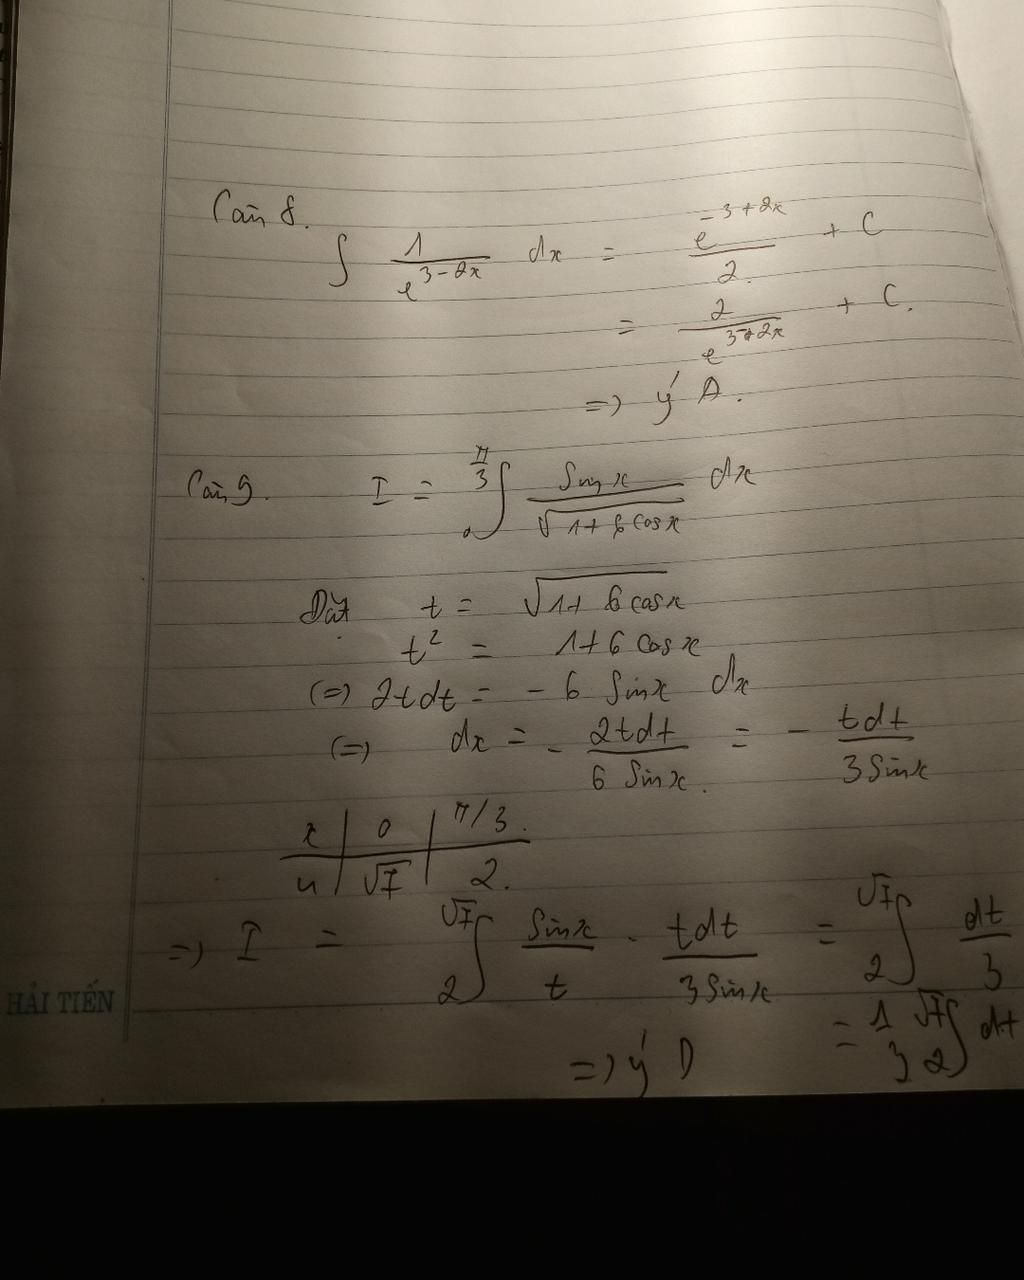 Câu 8.
∫ 1/e^(3-2x) dx = e^(-3+2x)/2 + C
= 2/e^(3+2x) + C.
=> ý A.
Câu 9. I = ∫₀^(π/3) Sinx/√(1+6cosx) dx
Đặt t = √(1+6cosx)
t² = 1+6cosx
(=) 2tdt = -6 Sinx dx
(=) dx = - 2tdt/(6 Sinx). = - tdt/(3Sinx)
x | 0 | π/3.
u | √7 | 2.
=> I = ∫₂^√7 Sinx/t . tdt/(3Sinx) = ∫₂^√7 dt/3
HẢI TIẾN
= 1/3 ∫₂^√7 dt
=> ý D